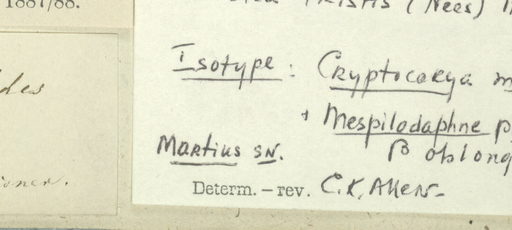 1887/88.
tristis (Nees)
des
Isotype: Cryptocarya m
+ Mespilodaphne p
β oblong
Martius SN.
Determ. – rev. C.K. Allen